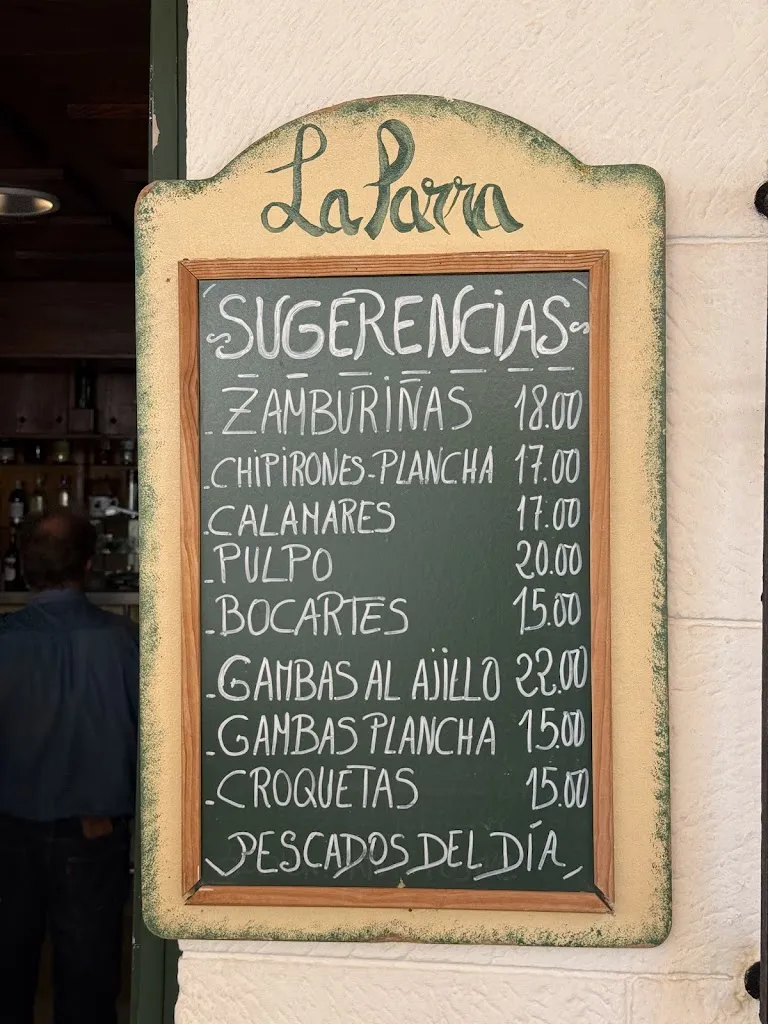 La Parra
SUGERENCIAS
ZAMBURIÑAS 18.00
-CHIPIRONES-PLANCHA 17.00
-CALAMARES 17.00
-PULPO 20.00
-BOCARTES 15.00
-GAMBAS AL AJILLO 22.00
-GAMBAS PLANCHA 15.00
-CROQUETAS 15.00
PESCADOS DEL DÍA